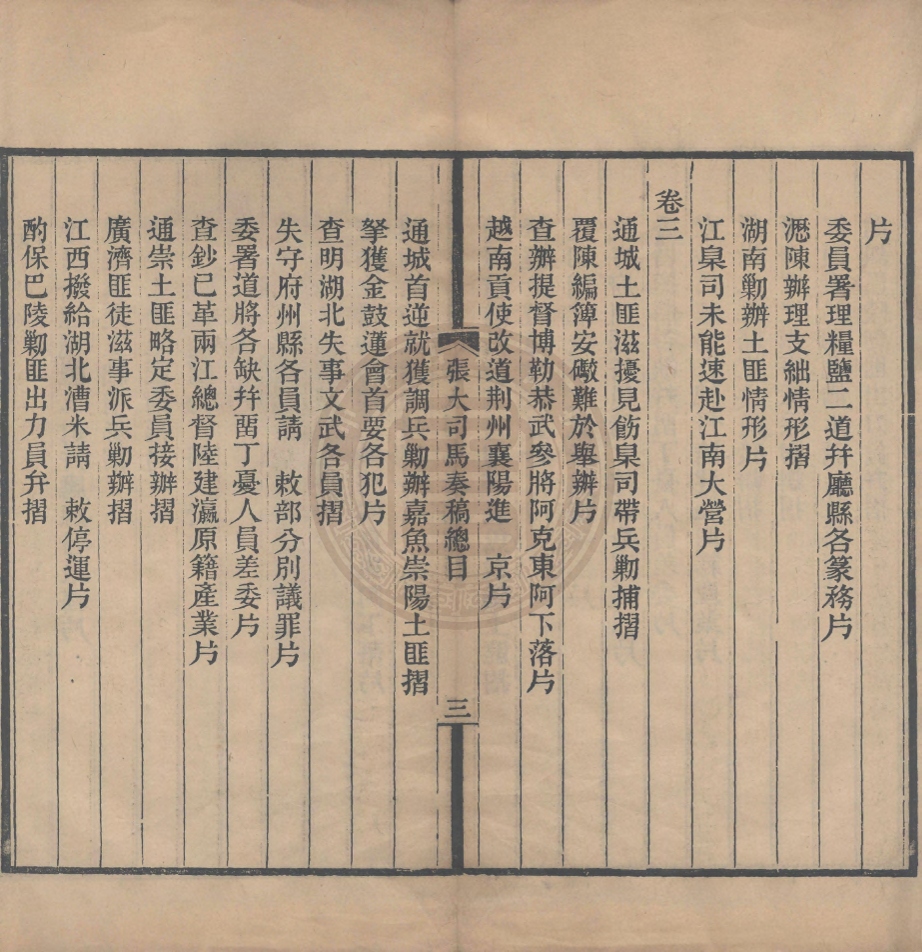 片
委員署理糧鹽二道幷廳縣各篆務片
瀝陳辦理支絀情形摺
湖南勦辦土匪情形片
江臬司未能速赴江南大營片
卷三
通城土匪滋擾見飭臬司帶兵勦捕摺
覆陳編簿安礮難於舉辦片
查辦提督博勒恭武參將阿克東阿下落片
越南貢使改道荆州襄陽進　京片
張大司馬奏稿總目　三
通城首逆就獲調兵勦辦嘉魚崇陽土匪摺
拏獲金鼓蓮會首要各犯片
查明湖北失事文武各員摺
失守府州縣各員請　敕部分別議罪片
委署道將各缺幷畱丁憂人員差委片
查鈔已革兩江總督陸建瀛原籍產業片
通崇土匪略定委員接辦摺
廣濟匪徒滋事派兵勦辦摺
江西撥給湖北漕米請　敕停運片
酌保巴陵勦匪出力員弁摺